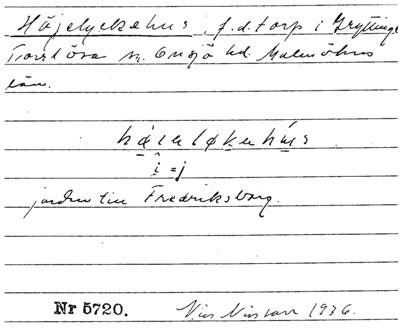 Höjelyckehus, f.d. torp i Gryttinge
Torrlösa sn. Onsjö hd. Malmöhus
län.
i = j
jorden till Fredriksborg.
Nr 5720. Nils Nilsson 1936.